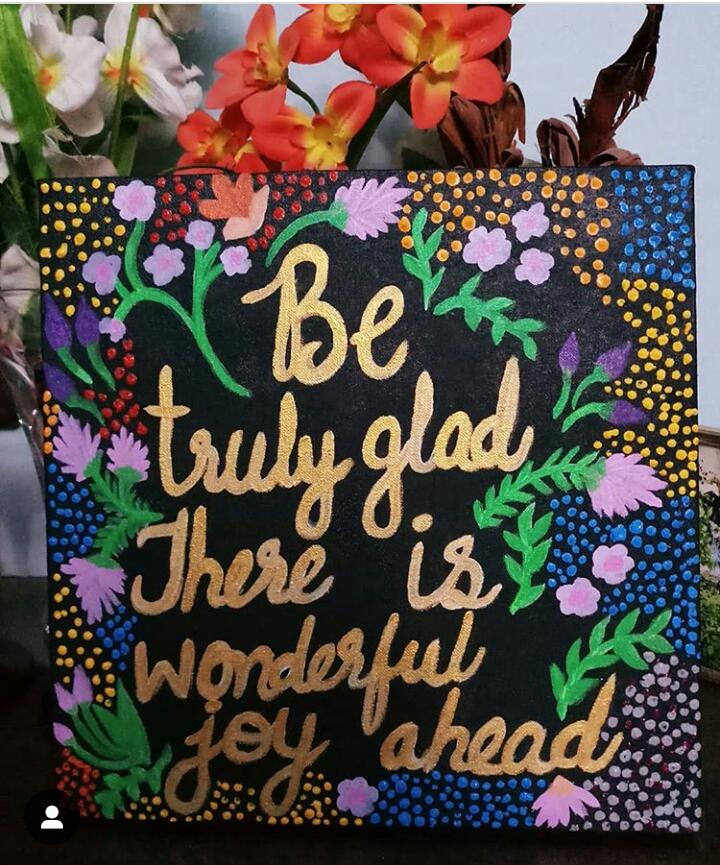 Be
truly glad
There is
wonderful
joy ahead